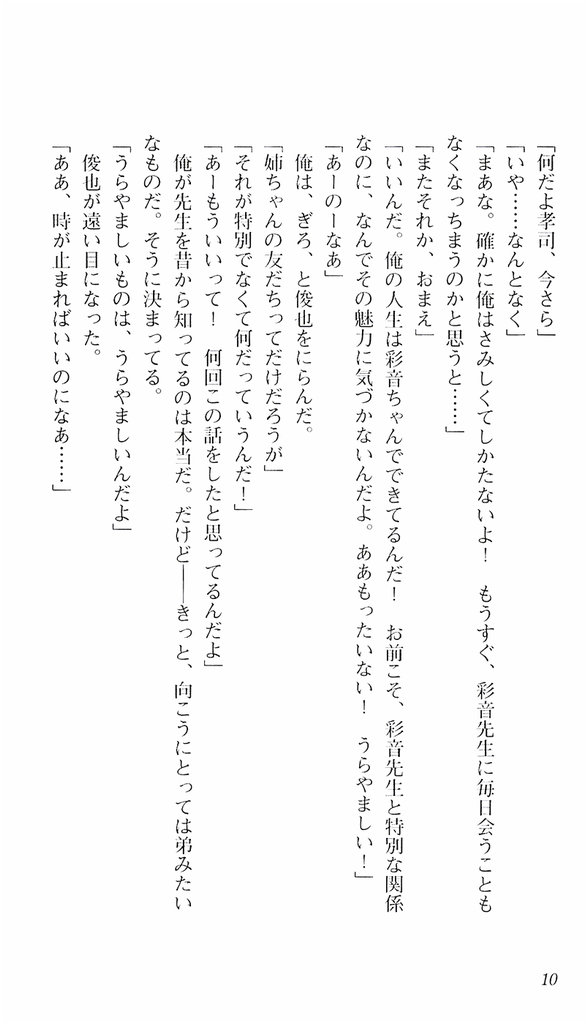 「何だよ孝司、今さら」
「いや……なんとなく」
「まあな。確かに俺はさみしくてしかたないよ！　もうすぐ、彩音先生に毎日会うことも
なくなっちまうのかと思うと……」
「またそれか、おまえ」
「いいんだ。俺の人生は彩音ちゃんでできてるんだ！　お前こそ、彩音先生と特別な関係
なのに、なんでその魅力に気づかないんだよ。ああもったいない！　うらやましい！」
「あーのーなぁ」
俺は、ぎろ、と俊也をにらんだ。
「姉ちゃんの友だちってだけだろうが」
「それが特別でなくて何だっていうんだ！」
「あーもういいって！　何回この話をしたと思ってるんだよ」
俺が先生を昔から知ってるのは本当だ。だけど――きっと、向こうにとっては弟みたい
なものだ。そうに決まってる。
「うらやましいものは、うらやましいんだよ」
俊也が遠い目になった。
「ああ、時が止まればいいのになぁ……」
10